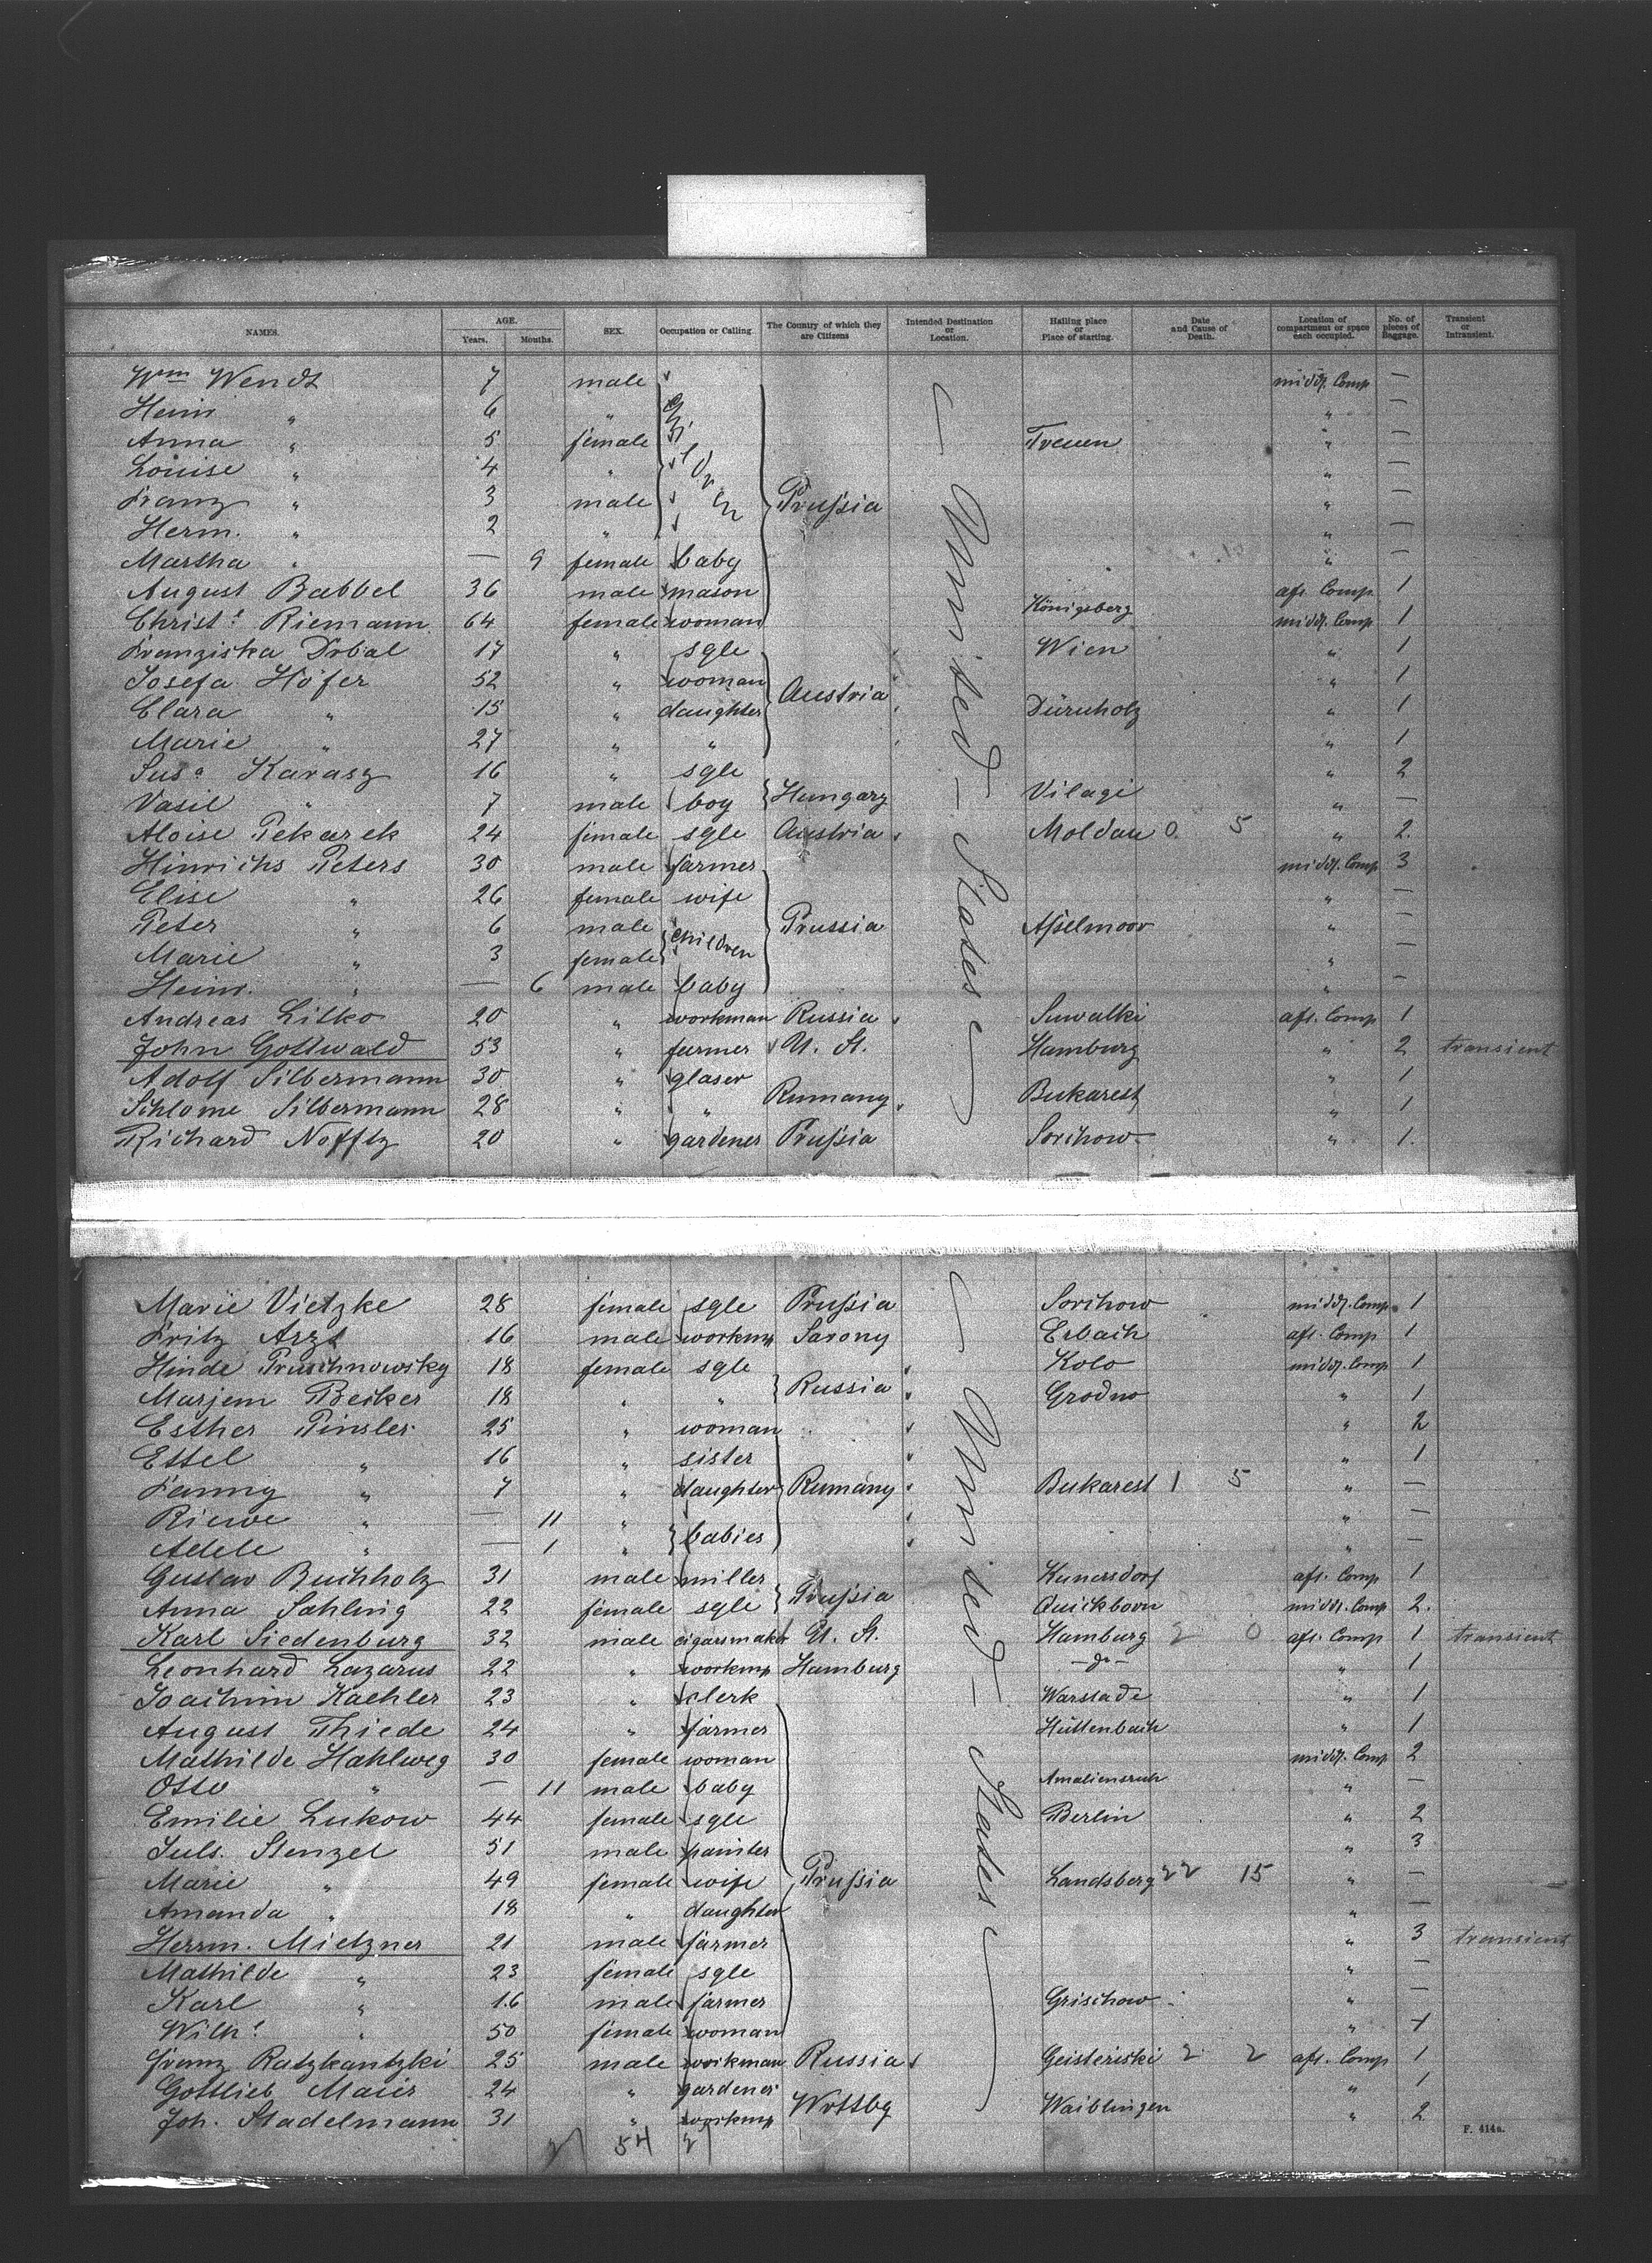 NAMES. AGE. Years. Months. SEX. Occupation or Calling. The Country of which they are Citizens Intended Destination or Location. Hailing place or Place of starting. Date and Cause of Death. Location of compartment or space each occupied. No. of pieces of Baggage. Transient or Intransient.
Wm Wendt 7 male midd. Comp —
Heinr. " 6 " " —
Anna " 5 female Treuen " —
Louise " 4 " " —
Franz " 3 male Prussia " —
Herm. " 2 " " —
Martha " — 9 female baby " —
August Babbel 36 male mason aft. Comp 1
Christe Riemann 64 female woman Königsberg midd. Comp 1
Franziska Drbal 17 " sgle Wien " 1
Josefa Höfer 52 " woman Austria " 1
Clara " 15 " daughter Dürnholz " 1
Marie " 27 " " " 1
Susa Karasz 16 " sgle " 2
Vasil " 7 male boy Hungary Vilagi " —
Aloise Pekarek 24 female sgle Austria Moldau 0 5 " 2
Hinrichs Peters 30 male farmer midd. Comp 3
Elise " 26 female wife " —
Peter " 6 male children Prussia Asselmoor " —
Marie " 3 female " —
Heinr. " — 6 male baby " —
Andreas Litko 20 " workman Russia Suwalki aft. Comp 1
John Gottwald 53 " farmer U. St. Hamburg " 2 transient
Adolf Silbermann 30 " glaser " 1
Schlome Silbermann 28 " " Rumany Bukarest " 1
Richard Nofftz 20 " gardener Prussia Sorchow " 1.
United States
Marie Vietzke 28 female sgle Prussia Sorchow midd. Comp 1
Fritz Arzt 16 male workmn Saxony Erbach aft. Comp 1
Hinde Pruschnowsky 18 female sgle Kolo midd. Comp 1
Marjem Becker 18 " " Russia Grodno " 1
Esther Pinsler 25 " woman " 2
Ettel " 16 " sister " 1
Fanny " 7 " daughter Rumany Bukarest 1 5 " —
Riewe " — 11 " " —
Adele " — 1 " babies " —
Gustav Buchholz 31 male miller Kunersdorf aft. Comp 1
Anna Sahling 22 female sgle Prussia Quickborn midd. Comp 2.
Karl Siedenburg 32 male cigarsmaker U. St. Hamburg 2 0 aft. Comp 1 transient
Leonhard Lazarus 22 " workmn Hamburg -do- " 1
Joachim Kaehler 23 " clerk Warstade " 1
August Thiede 24 " farmer Hüttenbach " 1
Mathilde Hahlweg 30 female woman midd. Comp 2
Otto " — 11 male baby Amaliensruh " —
Emilie Lukow 44 female sgle Berlin " 2
Juls. Stenzel 51 male painter " 3
Marie " 49 female wife Prussia Landsberg 22 15 " —
Amanda " 18 " daughter " —
Herrm. Mietzner 21 male farmer " 3 transient
Mathilde " 23 female sgle " —
Karl " 16 male farmer Grischow " —
Wilhe " 50 female woman "
Franz Ratzkantzki 25 male workman Russia Geisteriski 2 2 aft. Comp 1
Gottlieb Maier 24 " gardener " 1
Joh. Stadelmann 31 " workmn Wrttbg Waiblingen " 2
United States
54
F. 414a.